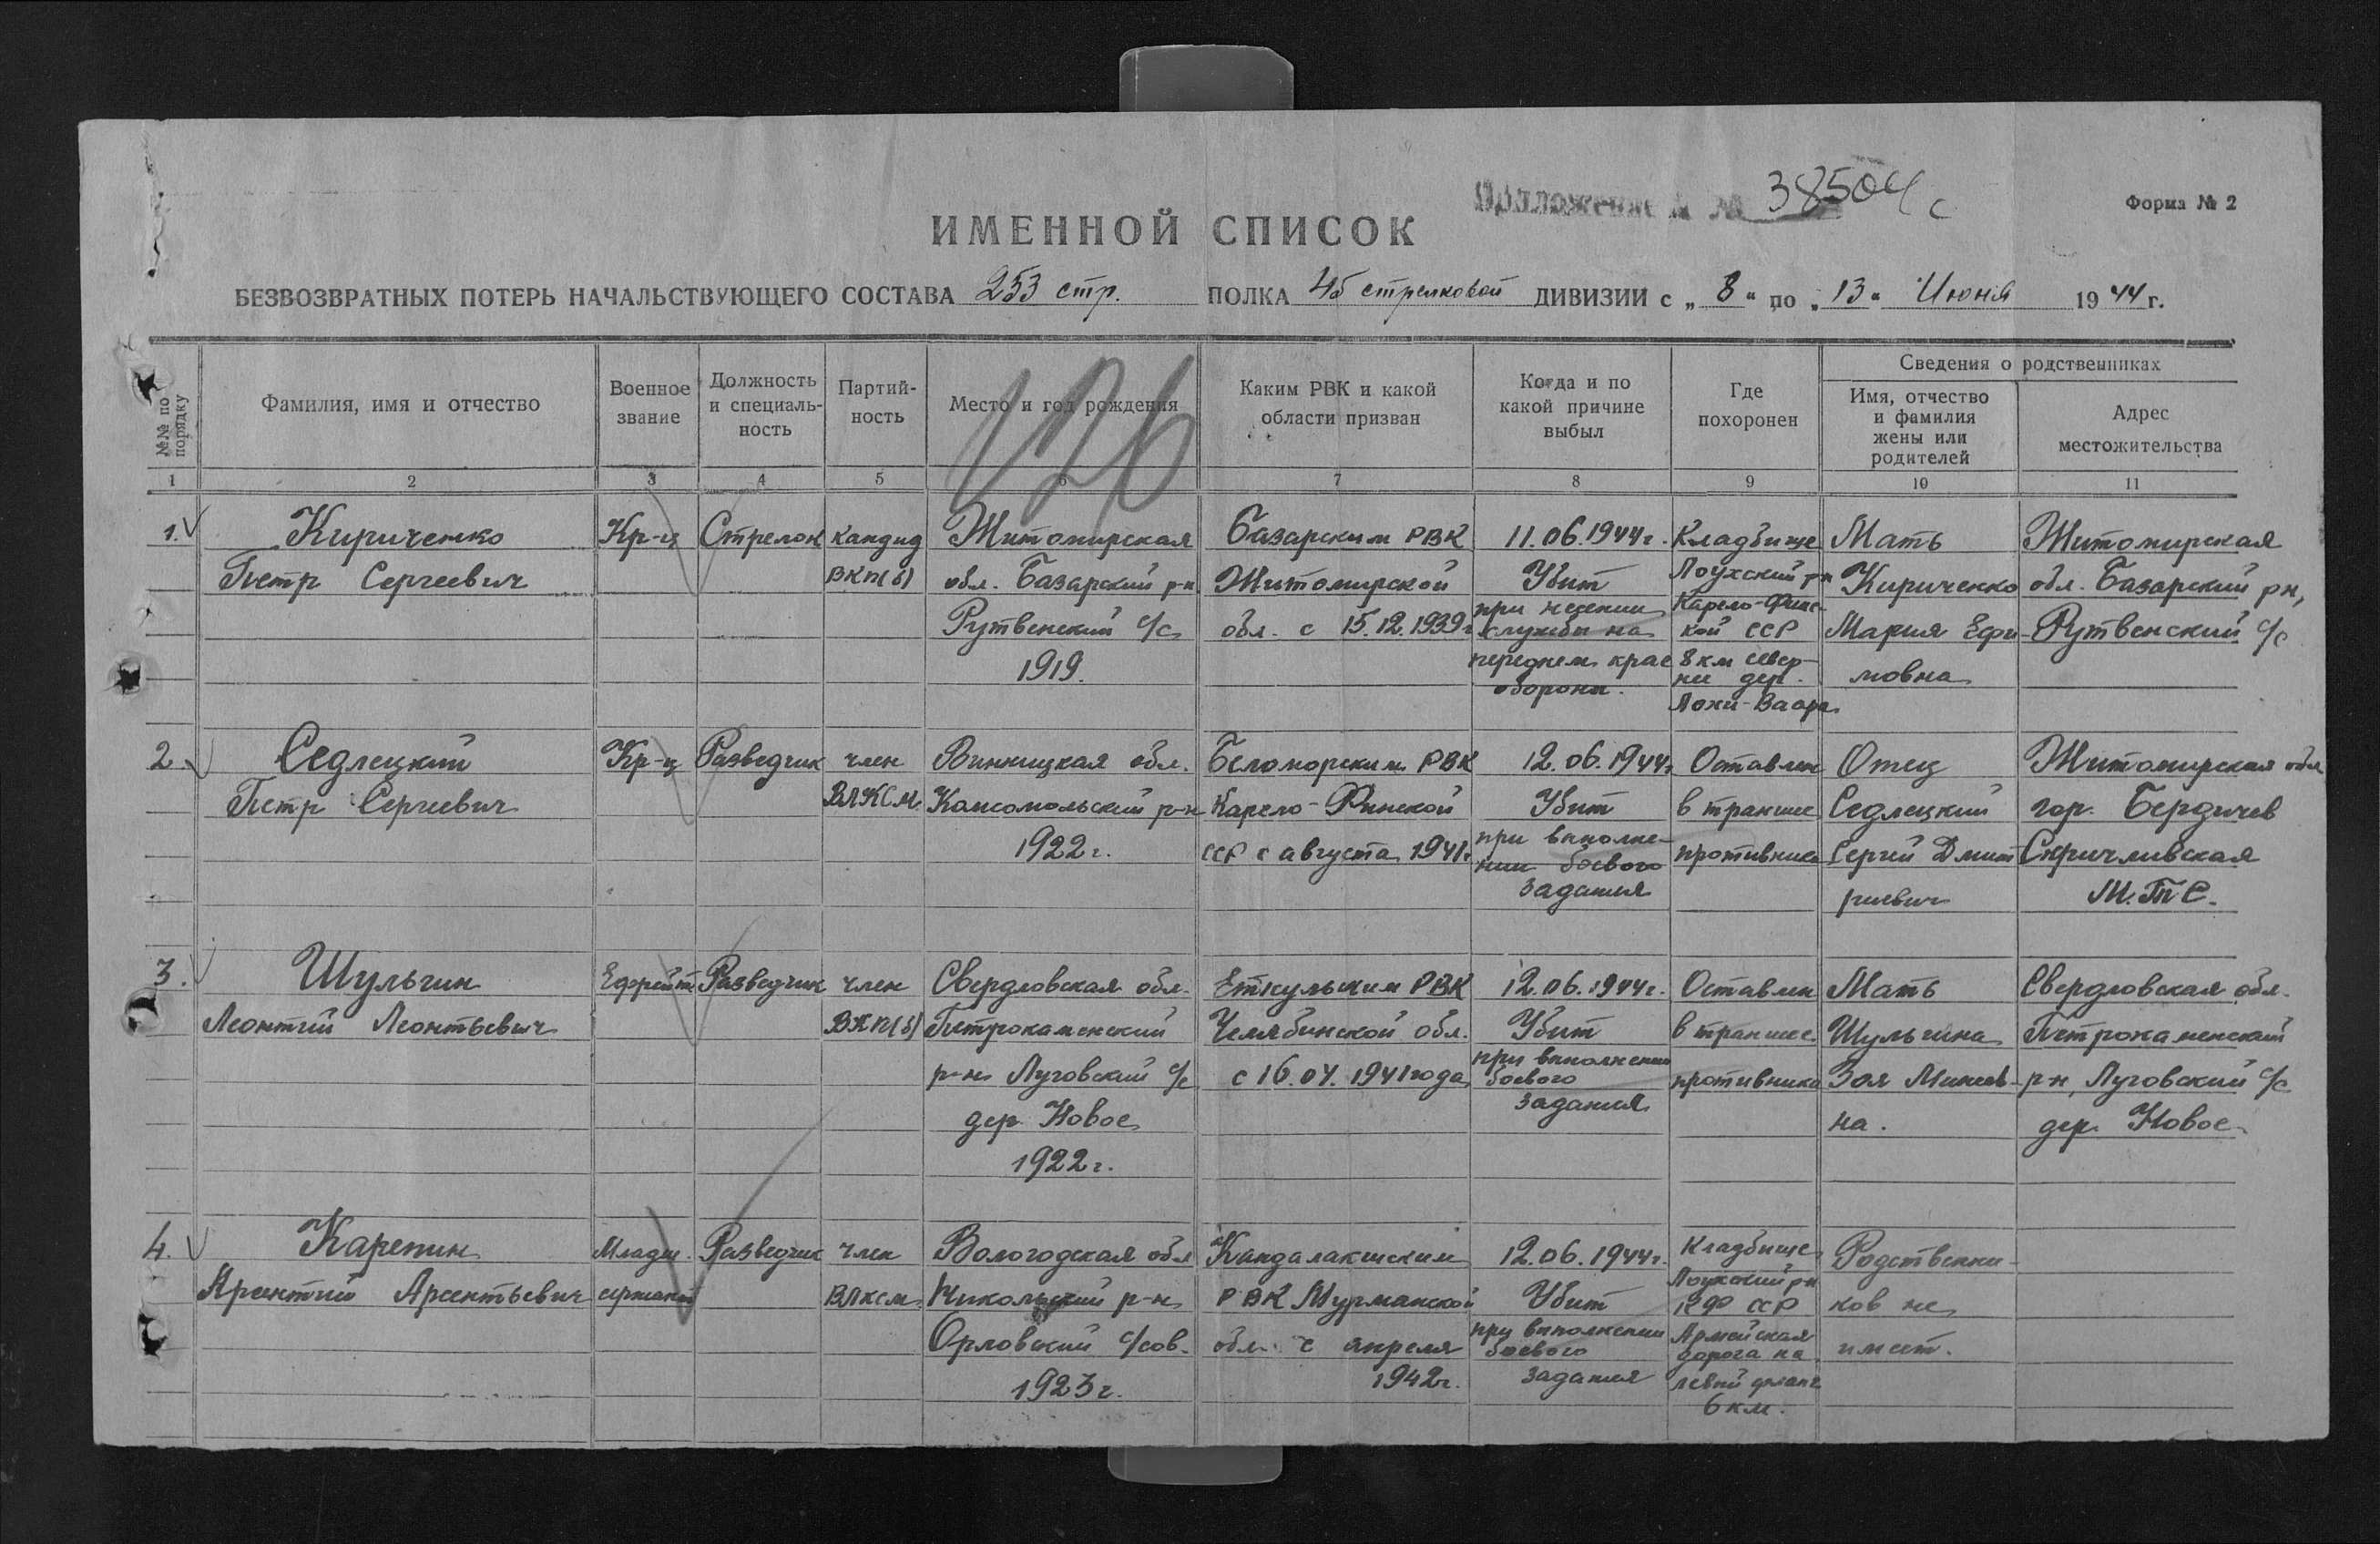 Приложение к № 38504 с
Форма № 2
ИМЕННОЙ СПИСОК
БЕЗВОЗВРАТНЫХ ПОТЕРЬ НАЧАЛЬСТВУЮЩЕГО СОСТАВА 253 стр. ПОЛКА 45 стрелковой ДИВИЗИИ с „8“ по „13“ Июня 1944 г.
№№ по порядку
Фамилия, имя и отчество
Военное
звание
Должность
и специаль-
ность
Партий-
ность
Место и год рождения
Каким РВК и какой
области призван
Когда и по
какой причине
выбыл
Где
похоронен
Сведения о родственниках
Имя, отчество
и фамилия
жены или
родителей
Адрес
местожительства
126
1 2 3 4 5 6 7 8 9 10 11
1.
Кириченко
Петр Сергеевич
Кр-ц
Стрелок
кандид
ВКП(б)
Житомирская
обл. Базарский р-н
Рутвенский с/с
1919.
Базарским РВК
Житомирской
обл. с 15.12.1939г
11.06.1944г.
Убит
при несении
службы на
переднем крае
обороны.
Кладбище
Лоухский рн
Карело-Финс-
кой ССР
8 км север-
нее дер.
Лохи-Ваара
Мать
Кириченко
Мария Ефи-
мовна
Житомирская
обл. Базарский рн,
Рутвенский с/с
2.
Седлецкий
Петр Сергеевич
Кр-ц
Разведчик
член
ВЛКСМ.
Винницкая обл.
Комсомольский р-н
1922г.
Беломорским РВК
Карело-Финской
ССР с августа 1941г
12.06.1944г
Убит
при выполне-
нии боевого
задания
Оставлен
в траншее
противника
Отец
Седлецкий
Сергей Дмит
риевич
Житомирская обл
гор. Бердичев
Скричливская
М.Т.С.
3.
Шульгин
Леонтий Леонтьевич
Ефрейт
Разведчик
член
ВКП(б)
Свердловская обл.
Петрокаменский
р-н Луговский с/с
дер. Новое
1922г.
Еткульским РВК
Челябинской обл.
с 16.04.1941 года
12.06.1944г.
Убит
при выполнении
боевого
задания
Оставлен
в траншее
противника
Мать
Шульгина
Зоя
на.
Свердловская обл.
Петрокаменский
р-н, Луговский с/с
дер. Новое
4.
Карепин
Арсентий Арсентьевич
Младш.
сержант
Разведчик
член
ВЛКСМ.
Вологодская обл
Никольский р-н
Орловский с/сов.
1923г.
Кандалакшским
РВК Мурманской
обл. с апреля
1942г.
12.06.1944г.
Убит
при выполнении
боевого
задания
Кладбище
Лоухский рн
КФ ССР
Армейская
дорога на
левый фланг
6 км.
Родственни-
ков не
имеет.